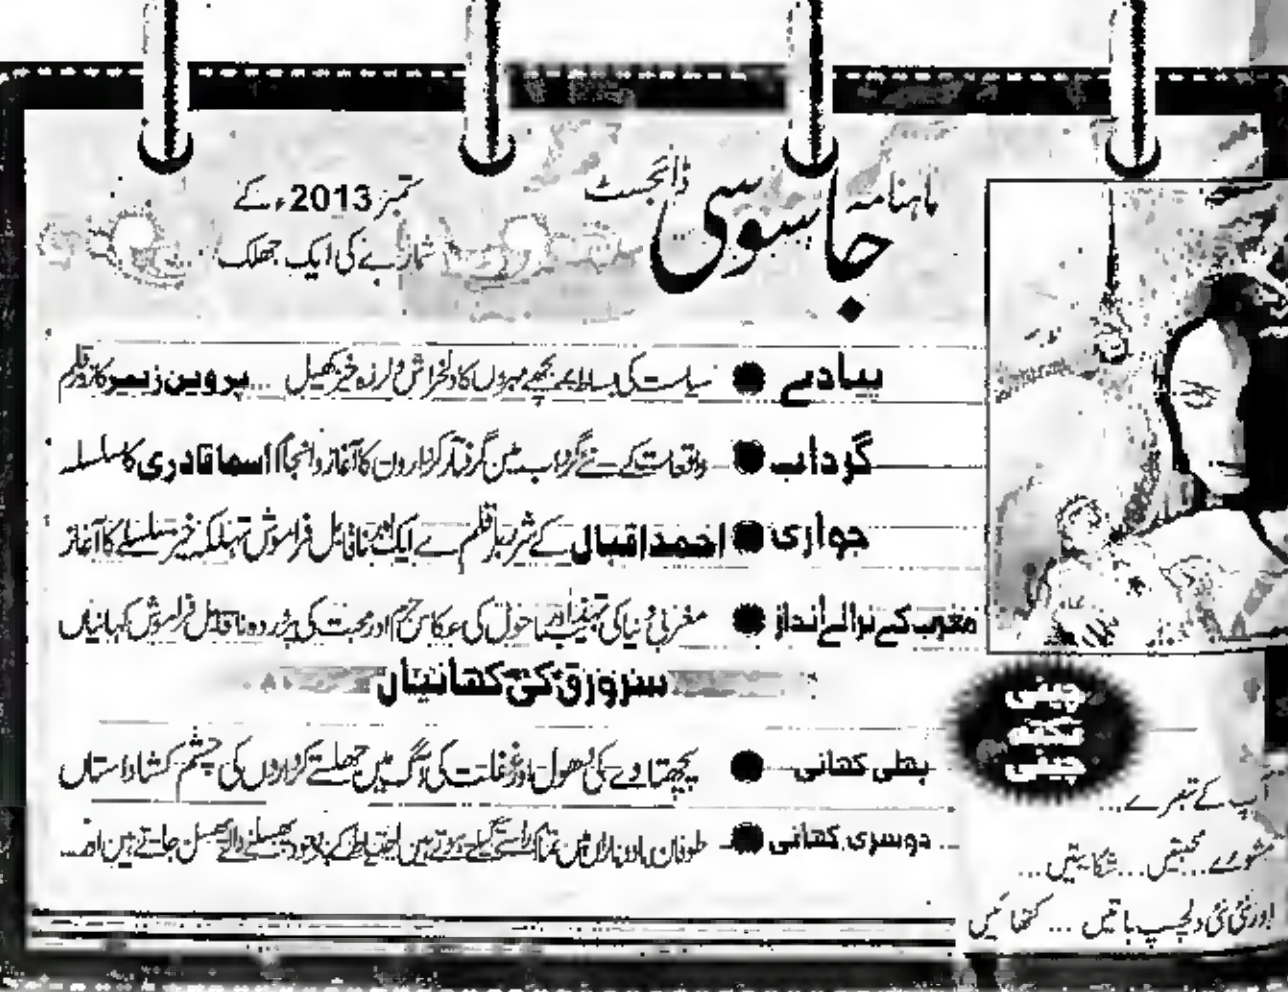 ماہنامہ جاسوسی ڈائجسٹ
ستمبر 2013ء کے
شمارے کی ایک جھلک
پیادے ● سیاست کی بساط پر بچھے مہروں کا دلخراش و لرزہ خیز کھیل ... پروین زبیر کا زور قلم
گرداب ● واقعات کے نئے گرداب میں گرفتار کرداروں کا آغاز و انجام اسما قادری کا سلسلہ
جواری ● احمد اقبال کے شرربار قلم سے ایک ناقابل فراموش تہلکہ خیز سلسلے کا آغاز
مغرب کے نرالے انداز ● مغربی دنیا کی تہذیب اور ماحول کی عکاس جرم اور محبت کی ناقابل فراموش کہانیاں
سرورق کی کہانیاں
پہلی کہانی ● پچھتاوے کی بھول اور غفلت کی آگ میں جھلستے کرداروں کی چشم کشا داستاں
دوسری کہانی ● طوفان باد و باراں میں تمام راستے گیلے ہوتے ہیں احتیاط کے باوجود پھسلنے والے پھسل جاتے ہیں اور...
چینی نکتہ چینی
آپ کے تبصرے...
مشورے... محبتیں... شکایتیں...
اور نئی نئی دلچسپ باتیں ... کتھائیں